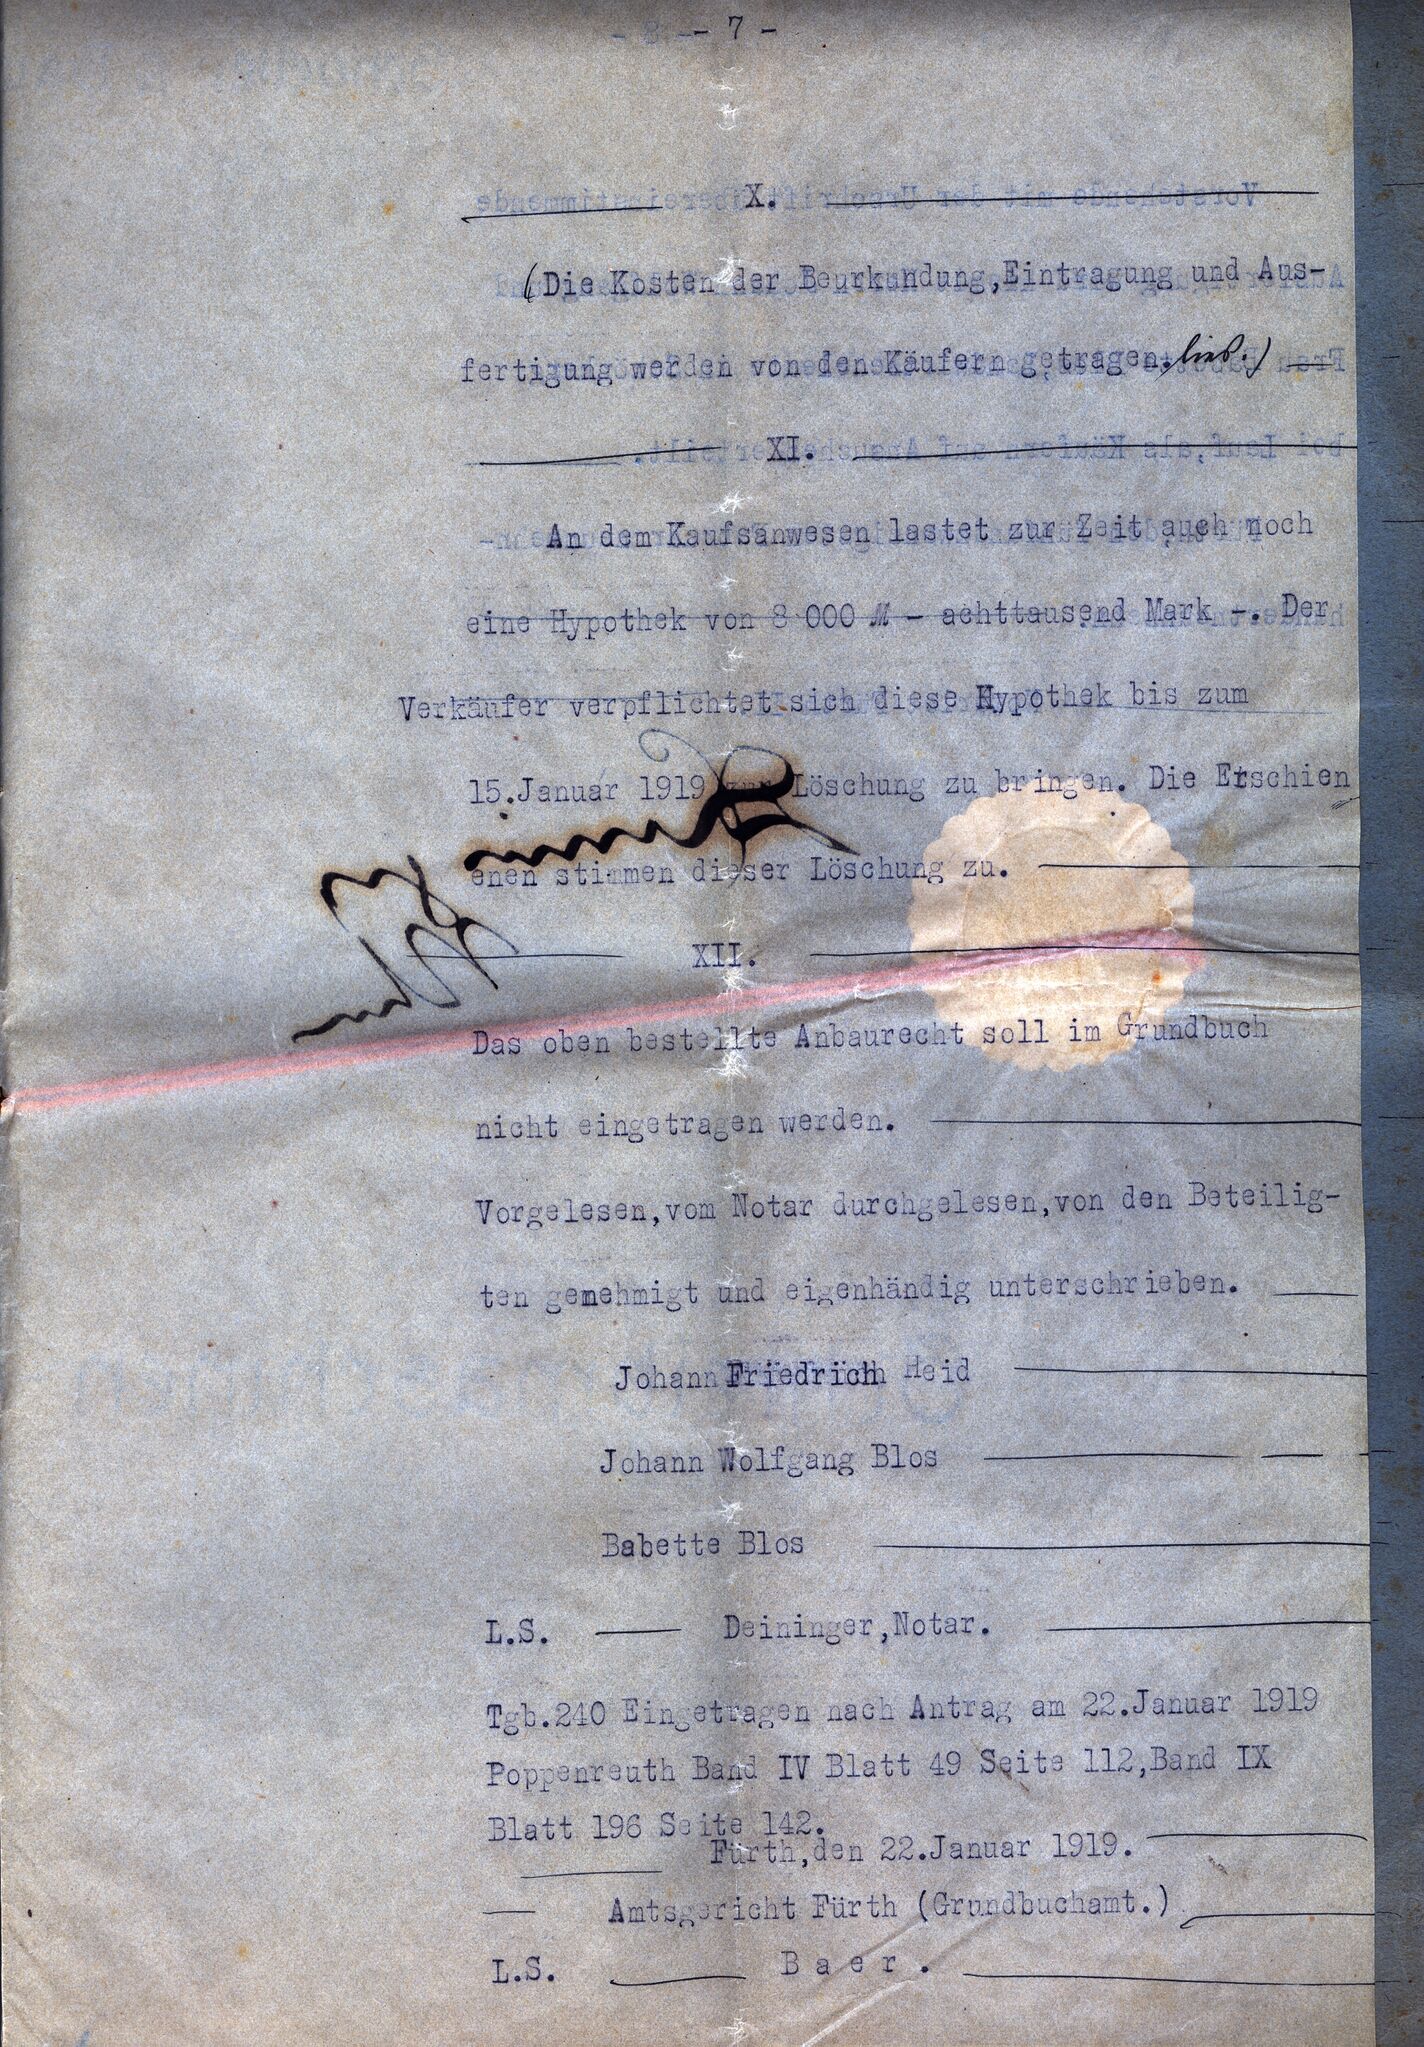 - 7 -
X.
(Die Kosten der Beurkundung,Eintragung und Aus-
fertigung werden von den Käufern getragen.)
XI.
An dem Kaufsanwesen lastet zur Zeit auch noch
eine Hypothek von 8 000 M - achttausend Mark -. Der
Verkäufer verpflichtet sich diese Hypothek bis zum
15.Januar 1919 zur Löschung zu bringen. Die Erschien
enen stimmen dieser Löschung zu.
XII.
Das oben bestellte Anbaurecht soll im Grundbuch
nicht eingetragen werden.
Vorgelesen,vom Notar durchgelesen,von den Beteilig-
ten genehmigt und eigenhändig unterschrieben.
Johann Friedrich Heid
Johann Wolfgang Blos
Babette Blos
L.S. Deininger,Notar.
Tgb.240 Eingetragen nach Antrag am 22.Januar 1919
Poppenreuth Band IV Blatt 49 Seite 112,Band IX
Blatt 196 Seite 142.
Fürth,den 22.Januar 1919.
Amtsgericht Fürth (Grundbuchamt.)
L.S. Baer.